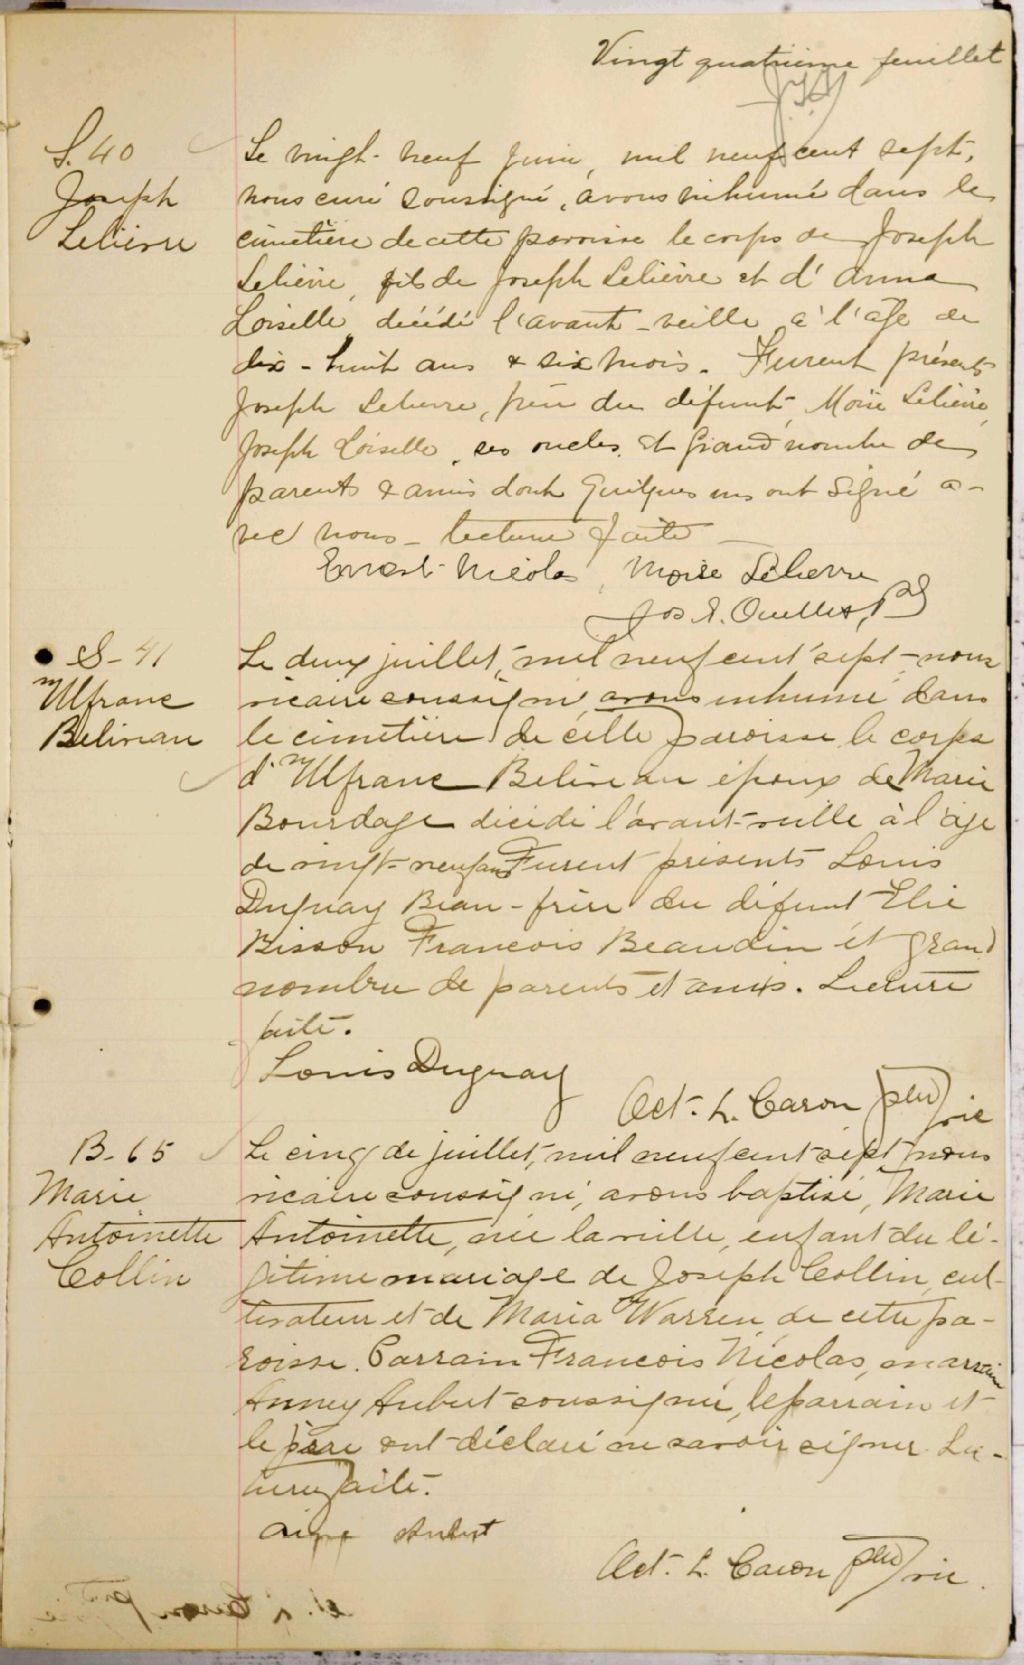 Vingt quatrième feuillet
S. 40
Joseph
Lelièvre
Le vingt-neuf juin, mil neuf cent sept,
nous curé soussigné, avons inhumé dans le
cimetière de cette paroisse le corps de Joseph
Lelièvre, fils de Joseph Lelièvre et d'Anna
Loiselle, décédé l'avant-veille à l'âge de
dix-huit ans & six mois. Furent présents
Joseph Lelievre, père du défunt, Moïse Lelièvre,
Joseph Loiselle, ses oncles, et grand nombre de
parents & amis dont quelques uns ont signé a-
vec nous - lecture faite -
Ernest Nicolas, Moïse Lelievre
Jos A. Ouellet, p
S-41
Ulfranc
Belivean
Le deux juillet, mil neuf cent sept, nous
vicaire soussigné, avons inhumé dans
le cimetière de cette paroisse le corps
d'Ulfranc Beliveau époux de Marie
Bourdage décédé l'avant-veille à l'âge
de vingt-neuf ans Furent présents Louis
Duguay Beau-frère du défunt Elie
Bisson Francois Beaudin et grand
nombre de parents et amis. Lecture
faite.
Louis Duguay
Oct. L. Caron ptre vic
B-65
Marie
Antoinette
Collin
Le cinq de juillet, mil neuf cent sept, nous
vicaire soussigné, avons baptisé, Marie
Antoinette, née la veille, enfant du lé-
gitime mariage de Joseph Collin, cul-
tivateur et de Maria Warren, de cette pa-
roisse. Parrain Francois Nicolas, marraine
Anney Aubut soussignée, le parrain et
le père ont déclaré ne savoir signer. Lec-
ture faite.
Aubut
Oct. L. Caron ptre vic.